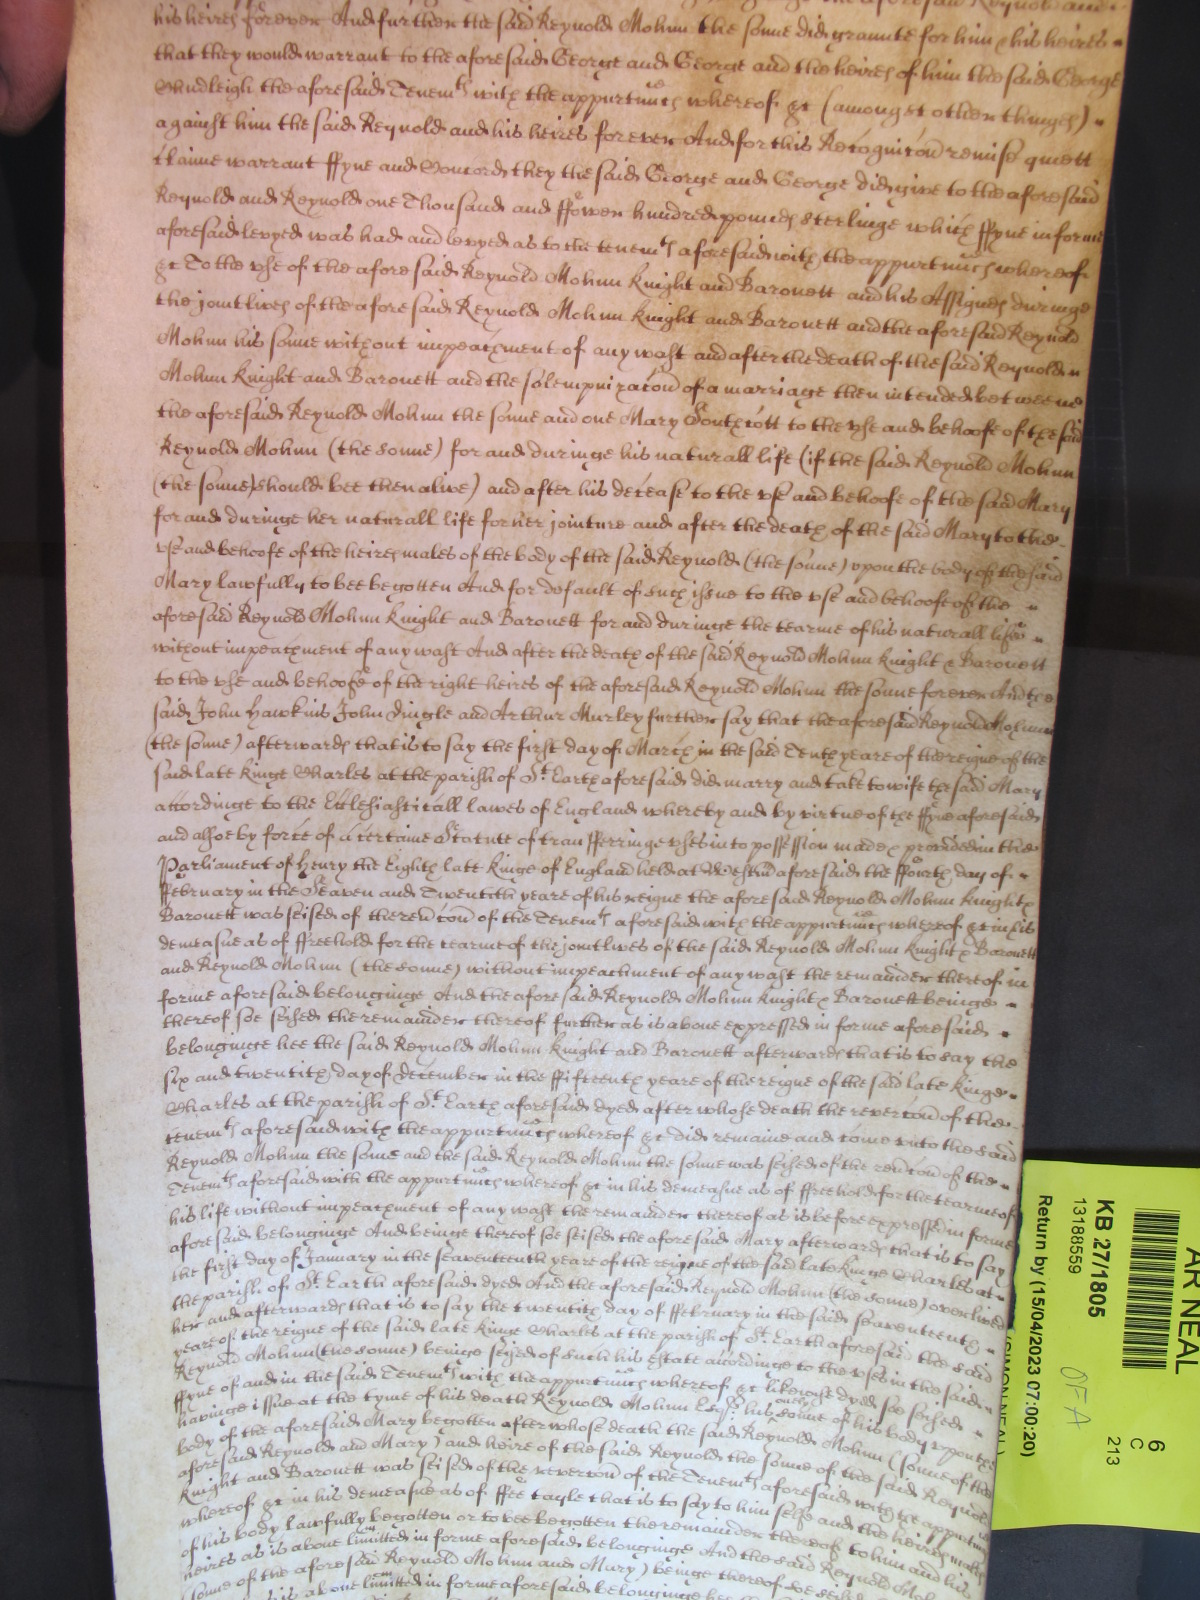 the aforesaid Reynold and
his heires forever And further the said Reynold Mohun the sonne did graunte for him & his heires
that they would warrant to the aforesaid George and George and the heires of him the said George
Chudleigh the aforesaid Tenemts with the appurtnncs whereof &c (amongst other things)
against him the said Reynold and his heires forever And for this Recognicon remise quiett
claime warrant ffyne and Concord they the said George and George did give to the aforesaid
Reynold and Reynold one Thousand and ffower hundred pounds sterlinge which ffyne in forme
aforesaid levyed was had and levyed as to the tenemts aforesaid with the appurtnncs whereof
&c To the vse of the aforesaid Reynold Mohun Knight and Baronett and his Assignes duringe
the joint lives of the aforesaid Reynold Mohun Knight and Baronett and the aforesaid Reynold
Mohun his sonne without impeachment of any wast and after the death of the said Reynold
Mohun Knight and Baronett and the solempnizacon of a marriage then intended betweene
the aforesaid Reynold Mohun the sonne and one Mary Southcott to the vse and behoofe of the said
Reynold Mohun (the sonne) for and duringe his naturall life (if the said Reynold Mohun
(the sonne) should bee then alive) and after his decease to the vse and behoofe of the said Mary
for and duringe her naturall life for her jointure and after the death of the said Mary to the
vse and behoofe of the heires males of the body of the said Reynold (the sonne) vpon the body of the said
Mary lawfully to bee begotten And for default of such issue to the vse and behoofe of the
aforesaid Reynold Mohun Knight and Baronett for and duringe the tearme of his naturall life
without impeachment of any wast And after the death of the said Reynold Mohun Knight & Baronett
to the vse and behoofe of the right heires of the aforesaid Reynold Mohun the sonne forever And the
said John Hawkins John Dingle and Arthur Murley further say that the aforesaid Reynold Mohun
(the sonne) afterwards that is to say the first day of March in the said Tenth yeare of the reigne of the
said late Kinge Charles at the parish of St. Earth aforesaid did marry and take to wife the said Mary
accordinge to the Ecclesiasticall lawes of England whereby and by virtue of the ffyne aforesaid
and alsoe by force of a certaine Statute of transfferringe vses into possession made & provided in the
Parliament of Henry the Eighth late Kinge of England held at Westmr aforesaid the ffourth day of
ffebruary in the Seaven and Twentith yeare of his reigne the aforesaid Reynold Mohun Knight &
Baronett was seised of the revcon of the Tenemts aforesaid with the appurtnncs whereof &c in his
demeasne as of ffreehold for the tearme of the joint lives of the said Reynold Mohun Knight & Baronett
and Reynold Mohun (the sonne) without impeachment of any wast the remainder thereof in
forme aforesaid belonginge And the aforesaid Reynold Mohun Knight & Baronett beinge
thereof soe seised the remainder thereof further as is above expressed in forme aforesaid
belonginge hee the said Reynold Mohun Knight and Baronett afterwards that is to say the
six and twentith day of December in the ffifteenth yeare of the reigne of the said late Kinge
Charles at the parish of St. Earth aforesaid dyed after whose death the revercon of the
tenemts aforesaid with the appurtnncs whereof &c did remaine and come vnto the said
Reynold Mohun the sonne and the said Reynold Mohun the sonne was seised of the revcon of the
Tenemts aforesaid with the appurtnncs whereof &c in his demeasne as of ffreehold for the tearme of
his life without impeachment of any wast the remainder thereof as is before expressed in forme
aforesaid belonginge And beinge thereof soe seised the aforesaid Mary afterwards that is to say
the first day of January in the seaventeenth yeare of the reigne of the said late Kinge Charles at
the parish of St. Earth aforesaid dyed And the aforesaid Reynold Mohun (the sonne) overlived
her and afterwards that is to say the twentith day of ffebruary in the said seaventeenth
yeare of the reigne of the said late Kinge Charles at the parish of St. Earth aforesaid the said
Reynold Mohun (the sonne) beinge seised of such his estate accordinge to the vses in the said
ffyne of and in the said Tenemts with the appurtnncs whereof &c likewise dyed soe seised
havinge issue at the tyme of his death Reynold Mohun Esqr. his onely sonne of his body vpon the
body of the aforesaid Mary begotten after whose death the said Reynold Mohun (sonne of the
aforesaid Reynold and Mary) and heire of the said Reynold the sonne of the said Reynold
Knight and Baronett was seised of the revercon of the Tenemts aforesaid with the appurtnncs
whereof &c in his demeasne as of ffee tayle that is to say to him selfe and the heires males
of his body lawfully begotten or to bee begotten the remainder thereof to him and his
heires as is above limitted in forme aforesaid belonginge And the said Reynold Mohun
(sonne of the aforesaid Reynold Mohun and Mary) beinge thereof soe seised
is above limitted in forme aforesaid belonginge hee
AR NEAL
6
C
213
KB 27/1805
13188559
Return by (15/04/2023 07:00:20)
(SIMON NEAL)
OFA